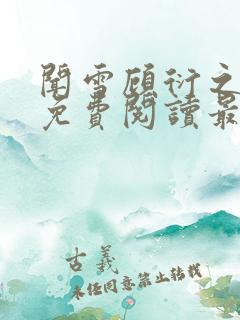 聞雪顧衍之
免費閱讀最
古義
未經同意禁止轉載